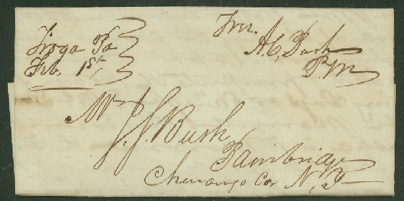 Tioga Pa
Feb. 1st
Free
A. C. Bush
P. M.
Mr
J. Bush
Bainbridge
Chenango Co. N. Y.